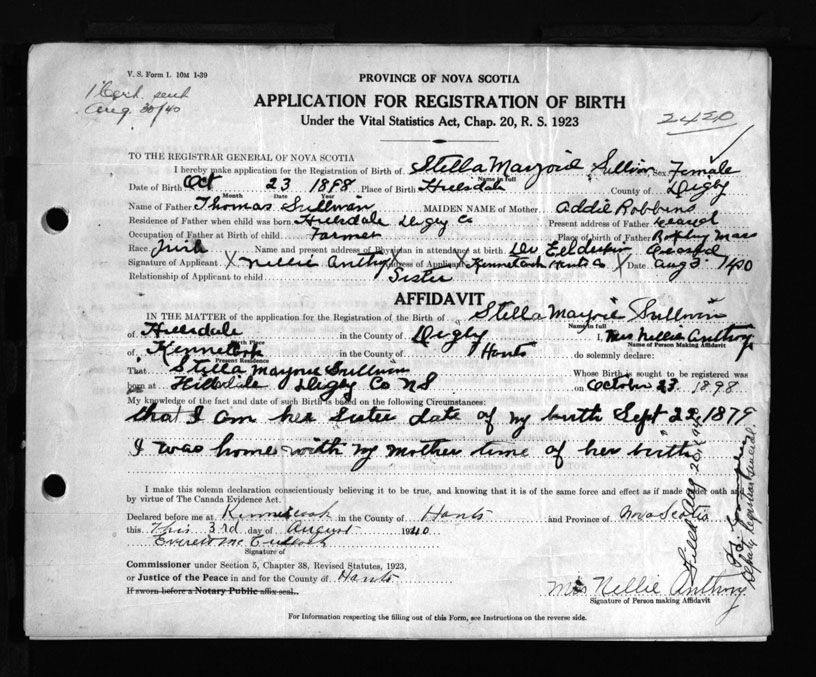 V. S. Form 1. 10M 1-39
1 Cert. sent
Aug. 30/40
PROVINCE OF NOVA SCOTIA
APPLICATION FOR REGISTRATION OF BIRTH
Under the Vital Statistics Act, Chap. 20, R. S. 1923
2420
TO THE REGISTRAR GENERAL OF NOVA SCOTIA
I hereby make application for the Registration of Birth of Stella Marjorie Sullivan Sex Female
Name in full
Date of Birth Oct 23 1898 Place of Birth Hillsdale County of Digby
Month Date Year
Name of Father Thomas Sullivan MAIDEN NAME of Mother Addie Robbins
Residence of Father when child was born Hillsdale Digby Co Present address of Father
Occupation of Father at Birth of child Farmer Place of birth of Father Mass
Race Name and present address of Physician in attendance at birth
Signature of Applicant X Nellie Anthony Address of Applicant X Kennetcook Hants Co X Date Aug 3 1940
Relationship of Applicant to child Sister
AFFIDAVIT
IN THE MATTER of the application for the Registration of the Birth of Stella Marjorie Sullivan
Name in full
of Hillsdale in the County of Digby I, Mrs Nellie Anthony
Birth Place Name of Person Making Affidavit
of Kennetcook in the County of Hants do solemnly declare:
Present Residence
That Stella Marjorie Sullivan Whose Birth is sought to be registered was
born at Hillsdale Digby Co NS on October 23 1898
My knowledge of the fact and date of such Birth is based on the following Circumstances:
that I am her sister date of my birth Sept 22 1879
I was home with my mother time of her birth
I make this solemn declaration conscientiously believing it to be true, and knowing that it is of the same force and effect as if made under oath and
by virtue of The Canada Evidence Act.
Declared before me at Kennetcook in the County of Hants and Province of Nova Scotia
this 3rd day of August 1940
Everett
Signature of
Commissioner under Section 5, Chapter 38, Revised Statutes, 1923,
or Justice of the Peace in and for the County of Hants
If sworn before a Notary Public affix seal.
Mrs Nellie Anthony
Signature of Person making Affidavit
For Information respecting the filling out of this Form, see Instructions on the reverse side.
Filed Aug 20, 1940
Deputy Registrar General.